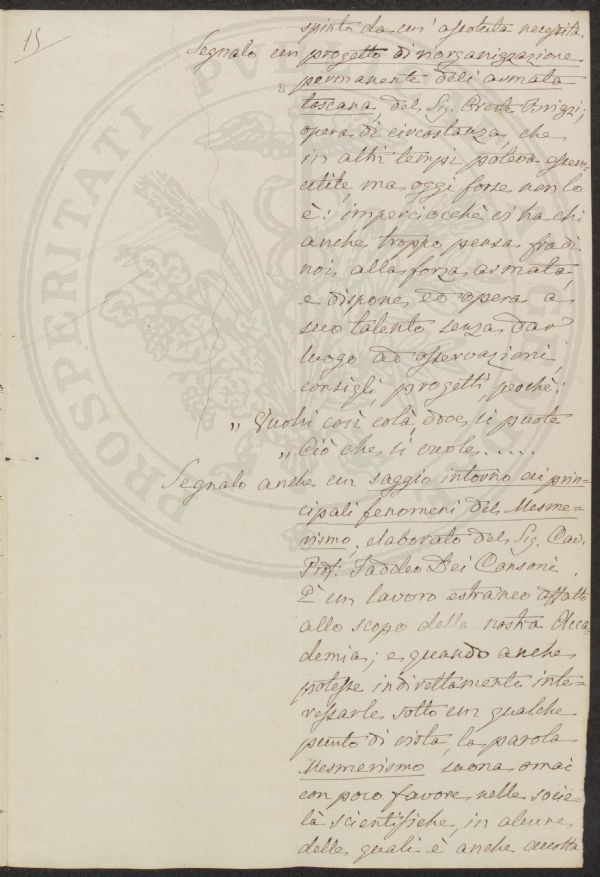 15
spinto da un' assoluta necessità.
Segnalo un progetto di riorganizzazione
permanente dell' armata
toscana, del Sig. Oreste Brizzi;
opera di circostanza, che
in altri tempi poteva essere
utile, ma oggi forse non lo
è: imperciocchè ci ha chi
anche troppo pensa fra di
noi alla forza armata,
e dispone, ed opera a
suo talento senza dar
luogo ad osservazioni,
consigli, progetti, perchè:
„ Vuolsi così colà, dove si puote
„ Ciò che si vuole.....
Segnalo anche un saggio intorno ai prin-
cipali fenomeni del Mesme-
rismo, elaborato dal Sig. Cav.
Prof. Taddeo Dei Consoni.
È un lavoro estraneo affatto
allo scopo della nostra Acca-
demia; e quando anche
potesse indirettamente inte-
ressarle sotto un qualche
punto di vista, la parola
Mesmerismo suona omai
con poco favore nelle socie-
tà scientifiche, in alcune
delle quali è anche accolta
PROSPERITATI PUBLICAE